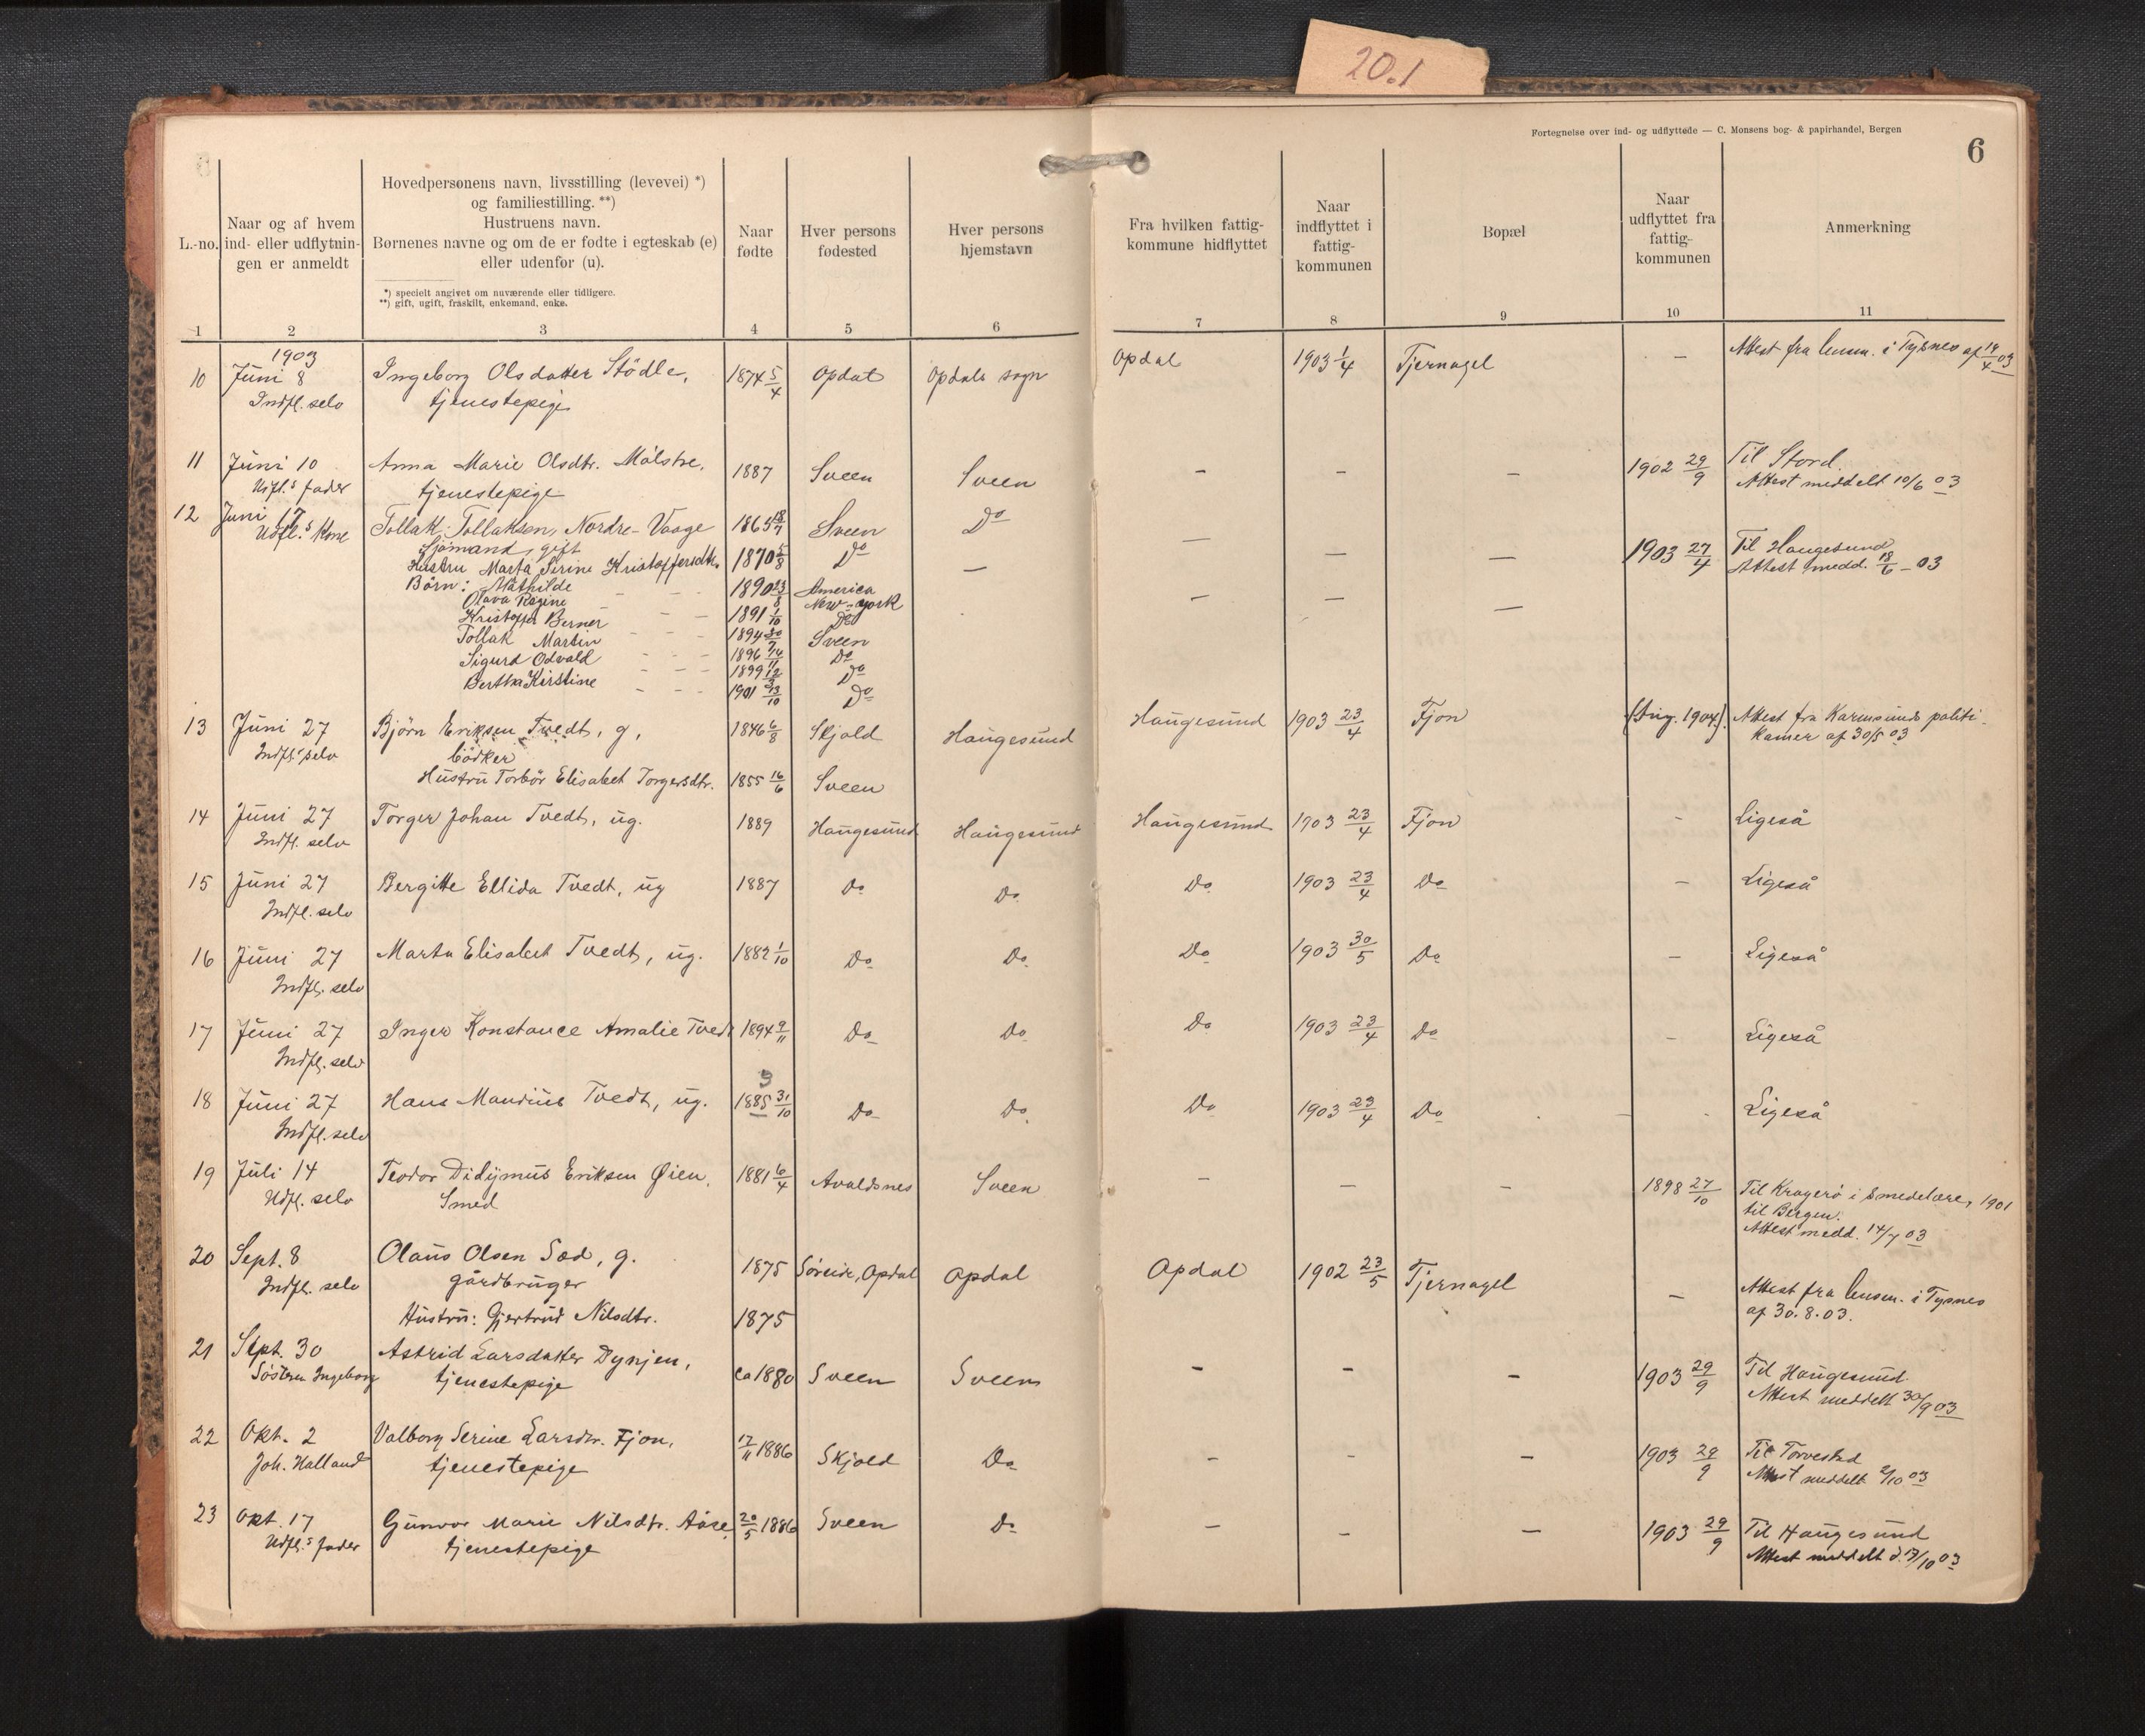 20.1
Fortegnelse over ind- og udflyttede — C. Monsens bog- & papirhandel, Bergen
6
L.-no.
Naar og af hvem
ind- eller udflytnin-
gen er anmeldt
Hovedpersonens navn, livsstilling (levevei) *)
og familiestilling. **)
Hustruens navn.
Børnenes navne og om de er fødte i egteskab (e)
eller udenfor (u).
*) specielt angivet om nuværende eller tidligere.
**) gift, ugift, fraskilt, enkemand, enke.
Naar
fødte
Hver persons
fødested
Hver persons
hjemstavn
Fra hvilken fattig-
kommune hidflyttet
Naar
indflyttet i
fattig-
kommunen
Bopæl
Naar
udflyttet fra
fattig-
kommunen
Anmerkning
1 2 3 4 5 6 7 8 9 10 11
1903
10 Juni 8 Ingeborg Olsdatter Stödle, 1874 5/4 Opdal Opdals sogn Opdal 1903 1/4 Tjernagel — Attest fra lensm. i Tysnes af 14/4 03
Indfl. selv tjenestepige
11 Juni 10 Anna Marie Olsdtr. Målstre, 1887 Sveen Sveen - - - 1902 29/9 Til Stord.
Udfl.s fader tjenestepige Attest meddelt 10/6 03
12 Juni 17 Tollak Tollaksen, Nordre-Vaage 1865 18/7 Sveen Do — — — 1903 27/4 Til Haugesund
Udfl.s kone Sjömand, gift Attest medd. 18/6 - 03
Hustru Marta Serine Kristoffersdtr. 1870 5/8 Do —
Börn: Mathilde 1890 23/8 America
Olava Regine New-York - — —
Kristoffer Berner 1891 1/10 Do
Tollak Martin 1894 30/7 Sveen
Sigurd Odvald 1896 14/11 Do
Bertha Kirstine 1899 12/9 Do
1901 23/10 Do
13 Juni 27 Björn Eriksen Tvedt, g, 1846 6/8 Skjold Haugesund Haugesund 1903 23/4 Fjon 1904). Attest fra Karmsunds politi-
Indfl. selv bödker kamer af 30/5 03
Hustru Torbör Elisabet Torgersdtr. 1855 16/6 Sveen
14 Juni 27 Torger Johan Tvedt, ug. 1889 Haugesund Haugesund Haugesund 1903 23/4 Fjon - Ligeså
Indfl. selv
15 Juni 27 Bergitte Ellida Tvedt, ug 1887 Do Do Do 1903 23/4 Do — Ligeså
Indfl. selv
16 Juni 27 Marta Elisabet Tvedt, ug. 1882 1/10 Do Do Do 1903 30/5 Do — Ligeså
Indfl. selv
17 Juni 27 Inger Konstance Amalie Tvedt 1894 9/11 Do Do Do 1903 23/4 Do - Ligeså
Indfl. selv
3
18 Juni 27 Hans Mandius Tvedt, ug. 1885 31/10 Do Do Do 1903 23/4 Do - Ligeså
Indfl. selv
19 Juli 14 Teodor Didymus Eriksen Øien, 1881 6/4 Avaldsnes Sveen - — - 1898 27/10 Til Kragerö i smedelære, 1901
Udfl. selv Smed til Bergen.
Attest medd. 14/7 03
20 Sept. 8 Olaus Olsen Sæd, g. 1875 Söreide, Opdal Opdal Opdal 1902 23/5 Tjernagel — Attest fra lensm. i Tysnes
Indfl. selv gårdbruger af 30.8.03.
Hustru: Gjertrud Nilsdtr. 1875
21 Sept. 30 Astrid Larsdatter Dynjen, ca 1880 Sveen Sveen - - - 1903 29/9 Til Haugesund.
Sösteren Ingeborg tjenestepige Attest meddelt 30/9 03
22 Okt. 2 Valborg Serine Larsdtr. Fjon, 17/11 1886 Skjold Do - - — 1903 29/9 Til Torvestad
Joh. Halland tjenestepige Attest meddelt 2/10 03
23 Okt. 17 Gunvor Marie Nilsdtr. Aase, 20/5 1886 Sveen Do — - — 1903 29/9 Til Haugesund
Udfl.s fader tjenestepige Attest meddelt d. 17/10 03